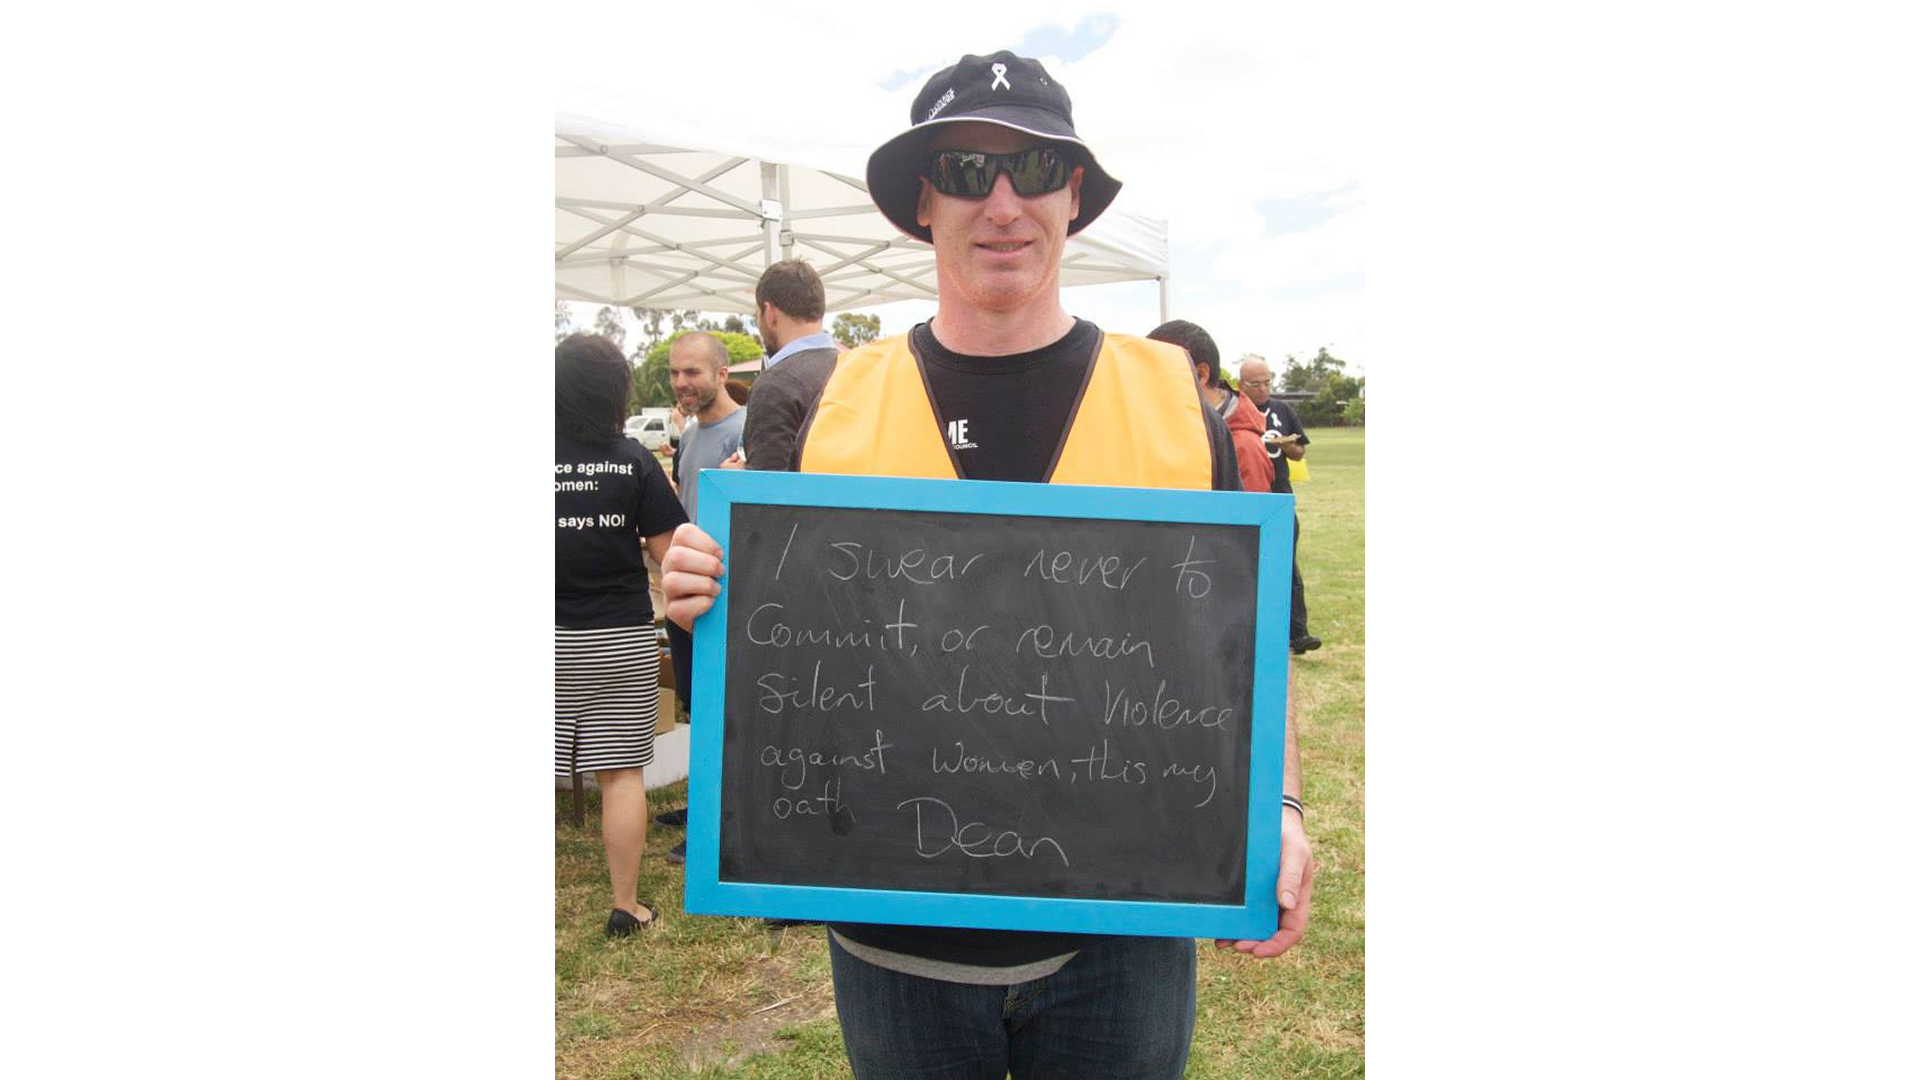 ME
COUNCIL
ce against
omen:
says NO!
I swear never to
Commit, or remain
Silent about Violence
against Women, this my
oath Dean